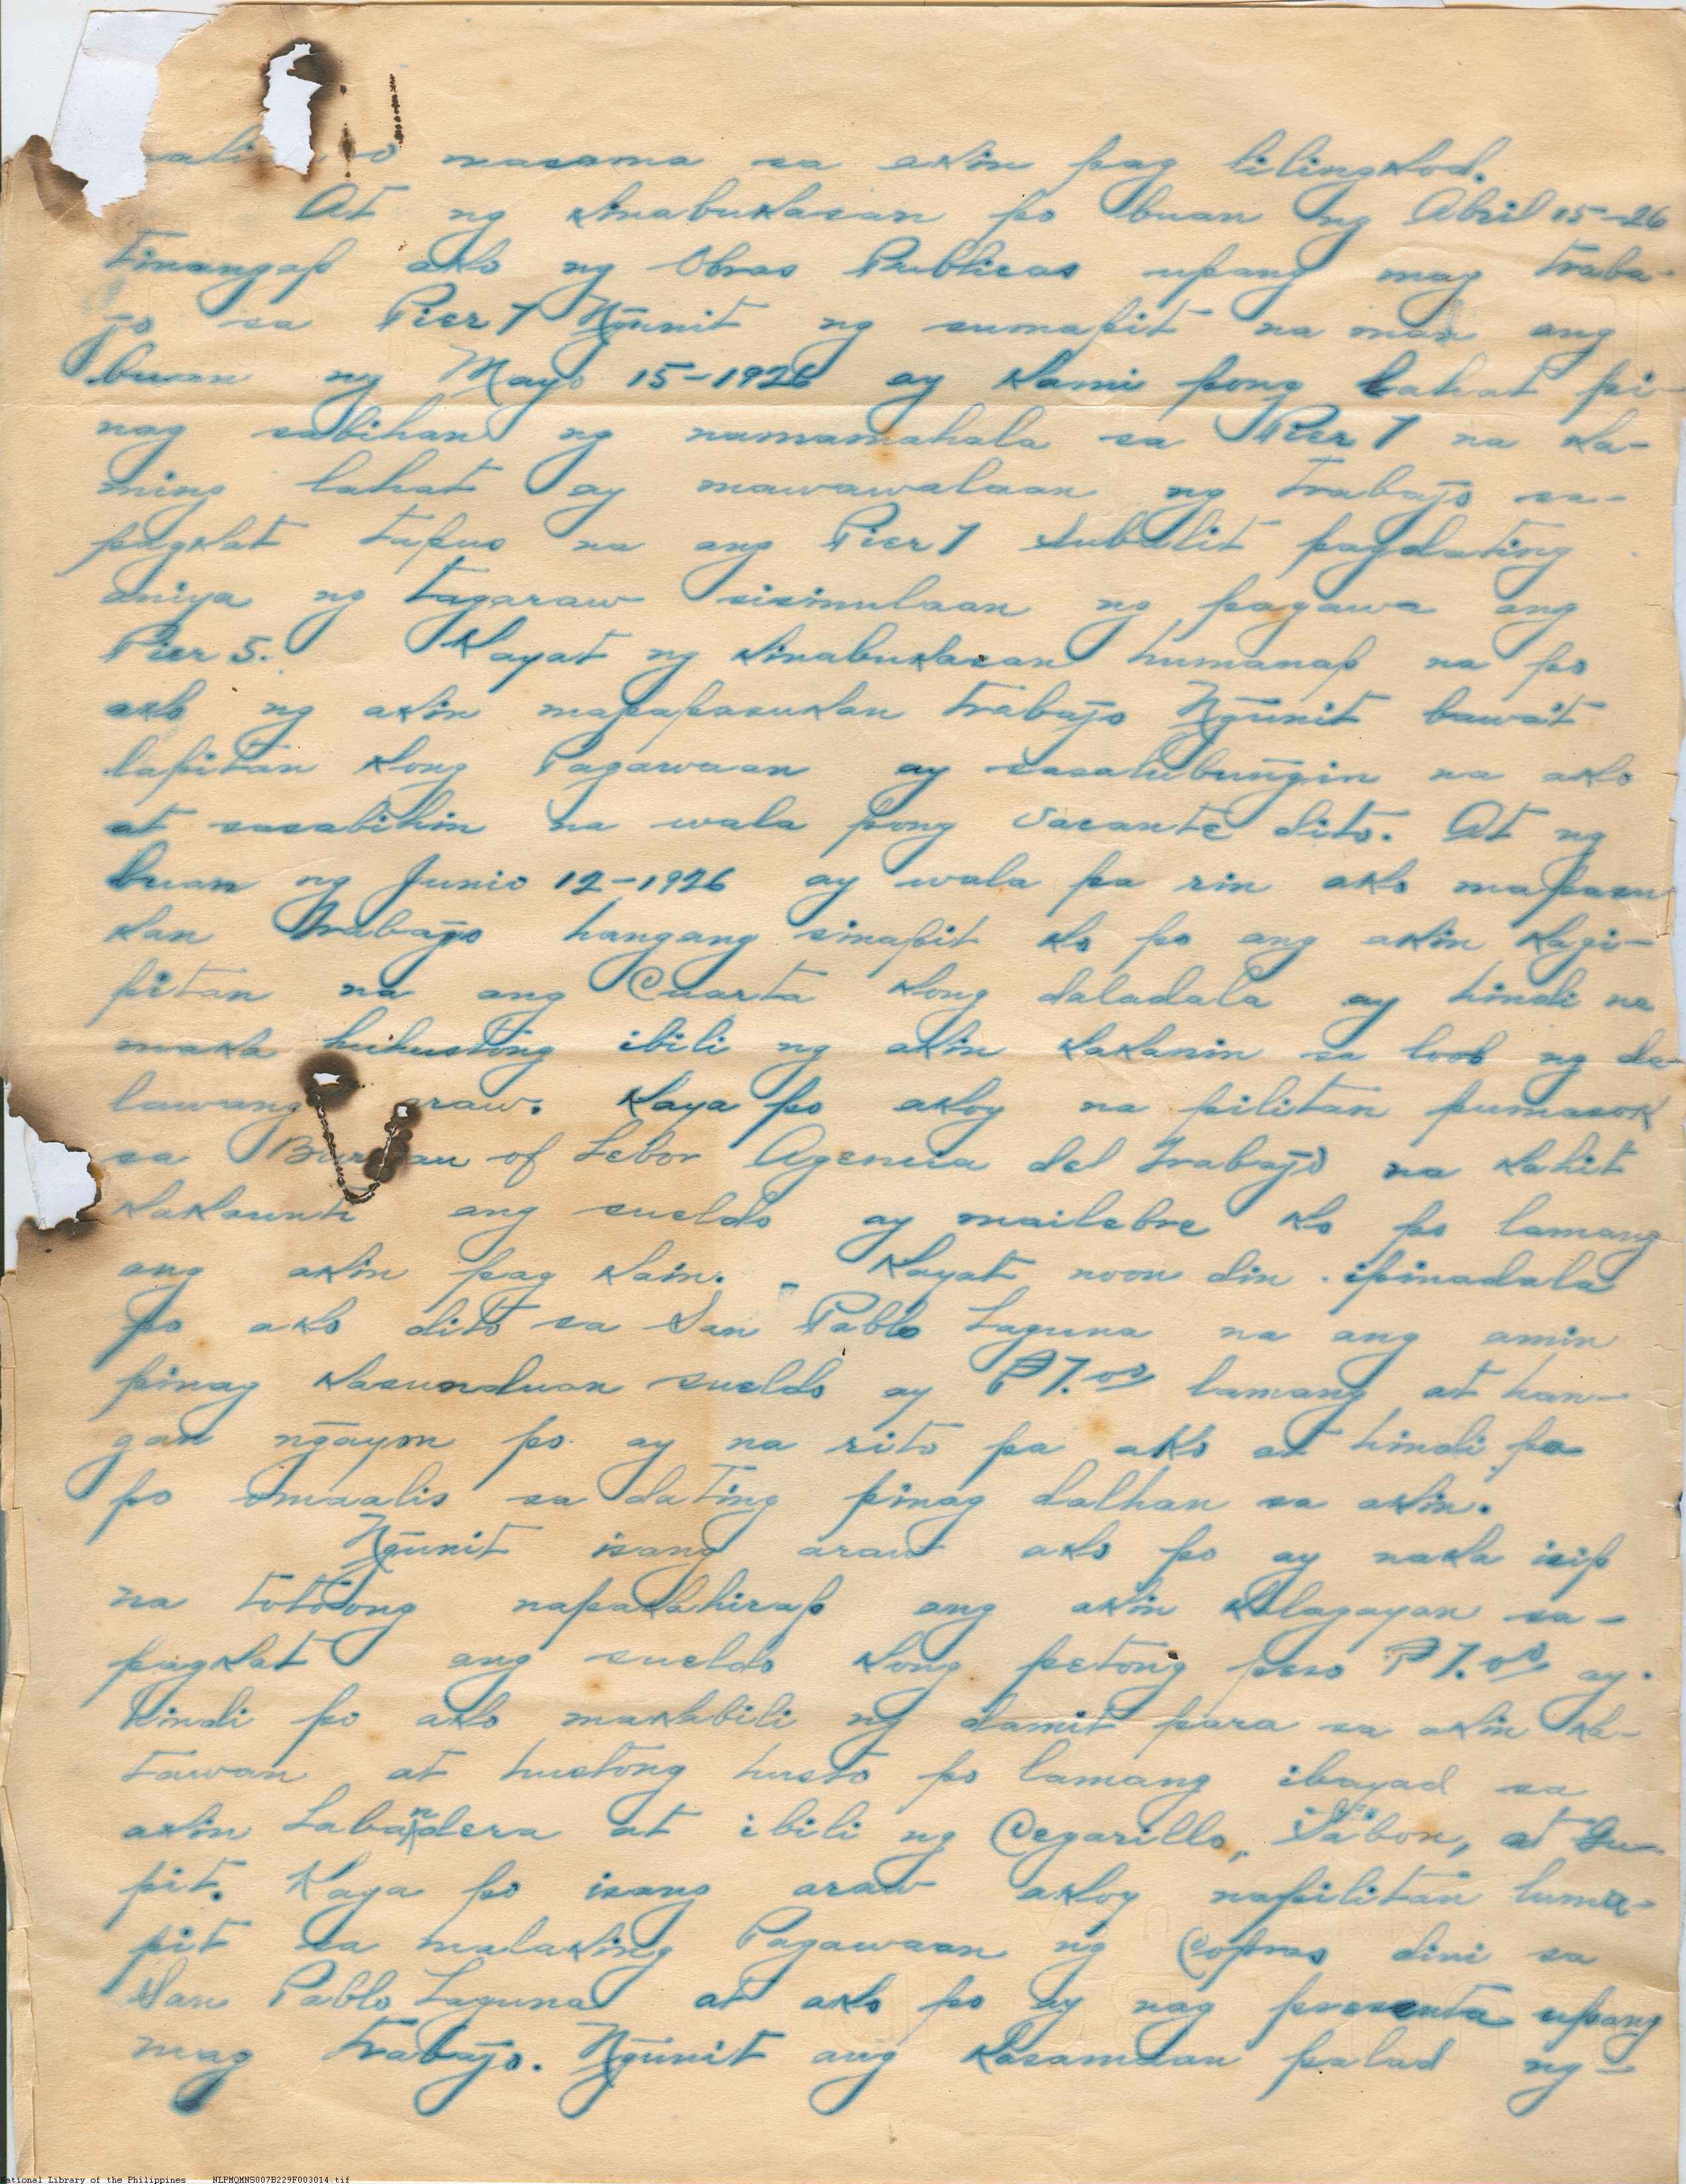 masama sa akin pag lilingkod.
At ng kinabukasan po buan ng Abril 15-26
tinangap ako ng Obras Publicas upang mag traba-
jo sa Pier 7 Ng̃unit ng sumapit na man ang
buan ng Mayo 15-1926 ay kami pong lahat pi-
nag sabihan ng namamahala sa Pier 7 na ka-
ming lahat ay mawawalaan ng trabajo sa-
pagkat tapus na ang Pier 7 subalit pagdating
aniya ng tagaraw sisimulaan ng pagawa ang
Pier 5. Kayat ng kinabukasan humanap na po
ako ng akin mapapasukan trabajo Ng̃unit bawat
lapitan kong Pagawaan ay sasalubung̃in na ako
at sasabihin na wala pong vacante dito. At ng
buan ng Junio 12-1926 ay wala pa rin ako mapasu
kan trabajo hangang sinapit ko po ang akin kagi-
pitan na ang Cuarta kong daladala ay hindi na
maka huhustong ibili ng akin kakanin sa loob ng da-
lawang araw. Kaya po akoy na pilitan pumasok
sa Bureau of Lebor Agencia del trabajo na kahit
kakaunti ang sueldo ay mailebre ko po lamang
ang akin pag kain. - Kayat noon din ipinadala
po ako dito sa San Pablo Laguna na ang amin
pinag kasunduan sueldo ay ₱7.00 lamang at han-
gan ng̃ayon po ay na rito pa ako at hindi pa
po umaalis sa dating pinag dalhan sa akin.
Ng̃unit isang araw ako po ay naka isip
na totoong napakahirap ang akin kalagayan sa-
pagkat ang sueldo kong petong peso ₱7.00 ay
hindi po ako makabili ng damit para sa akin ka-
tawan at hustong husto po lamang ibayad sa
akin Labandera at ibili ng Cegarillo, Sabon, at Gu-
pit. Kaya po isang araw akoy napilitan luma-
pit sa malaking Pagawaan ng Copras dini sa
San Pablo Laguna at ako po ay nag presenta upang
mag trabajo. Ng̃unit ang kasamaan palad ng-
National Library of the Philippines NLPMQMNS007B229F003014.tif